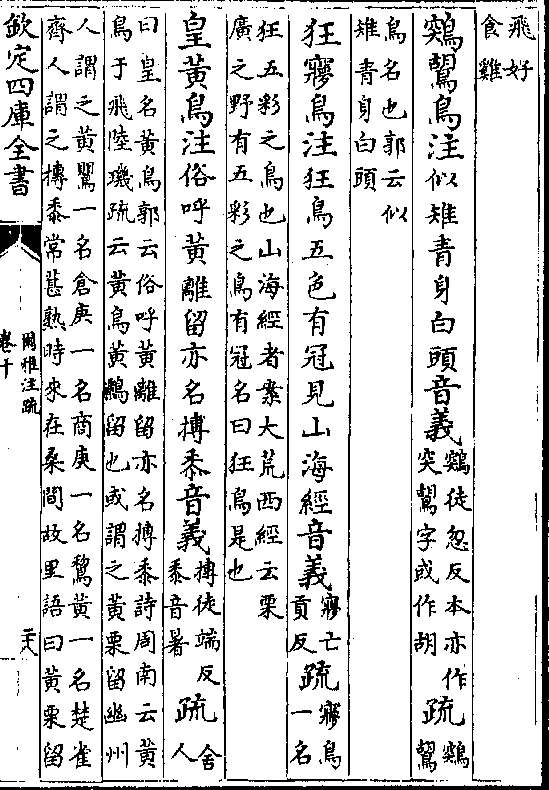 飛好
食雞
鶟鶦鳥注似雉青身白頭音義鶟徒忽反本亦作
突鶦字或作胡疏鶟鶦
鳥名也郭云似
雉青身白頭
狂㝱鳥注狂鳥五色有冠見山海經音義㝱亡
貢反疏㝱鳥
一名
狂五彩之鳥也山海經者案大荒西經云栗
廣之野有五彩之鳥有冠名曰狂鳥是也
皇黃鳥注俗呼黃離留亦名搏黍音義搏徒端反
黍音暑疏舍
人
曰皇名黃鳥郭云俗呼黃離留亦名搏黍詩周南云黃
鳥于飛陸璣疏云黃鳥黃鸝留也或謂之黃栗留幽州
人謂之黃鸎一名倉庚一名商庚一名鵹黃一名楚雀
齊人謂之搏黍常葚熟時來在桑間故里語曰黃栗留
欽定四庫全書
爾雅注疏
卷十
二十八